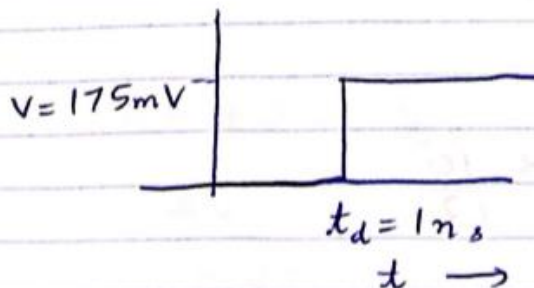 V = 175mV
t_d = 1n s
t →